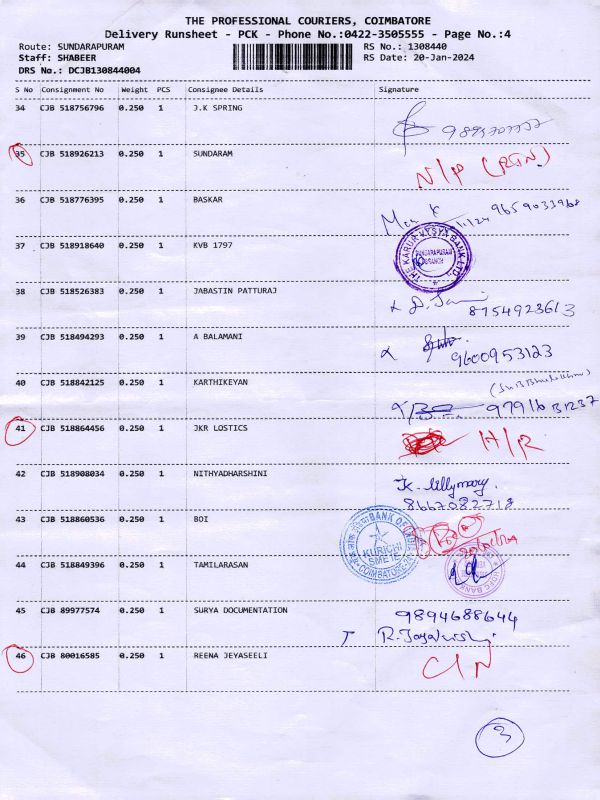 THE PROFESSIONAL COURIERS, COIMBATORE
Delivery Runsheet - PCK - Phone No.:0422-3505555 - Page No.:4
Route: SUNDARAPURAM RS No.: 1308440
Staff: SHABEER RS Date: 20-Jan-2024
DRS No.: DCJB130844004
S No Consignment No Weight PCS Consignee Details Signature
34 CJB 518756796 0.250 1 J.K SPRING
35 CJB 518926213 0.250 1 SUNDARAM
N/P
36 CJB 518776395 0.250 1 BASKAR
9659033968
37 CJB 518918640 0.250 1 KVB 1797
THE KARUR VYSYA BANK LTD
38 CJB 518526383 0.250 1 JABASTIN PATTURAJ
8754923613
39 CJB 518494293 0.250 1 A BALAMANI
9600953123
40 CJB 518842125 0.250 1 KARTHIKEYAN
41 CJB 518864456 0.250 1 JKR LOSTICS
H/R
42 CJB 518908034 0.250 1 NITHYADHARSHINI
K. lillymary.
8667082718
43 CJB 518860536 0.250 1 BOI
KURICHI
COIMBATORE
44 CJB 518849396 0.250 1 TAMILARASAN
HDFC BANK
45 CJB 89977574 0.250 1 SURYA DOCUMENTATION
9894688644
46 CJB 80016585 0.250 1 REENA JEYASEELI
C/N
3